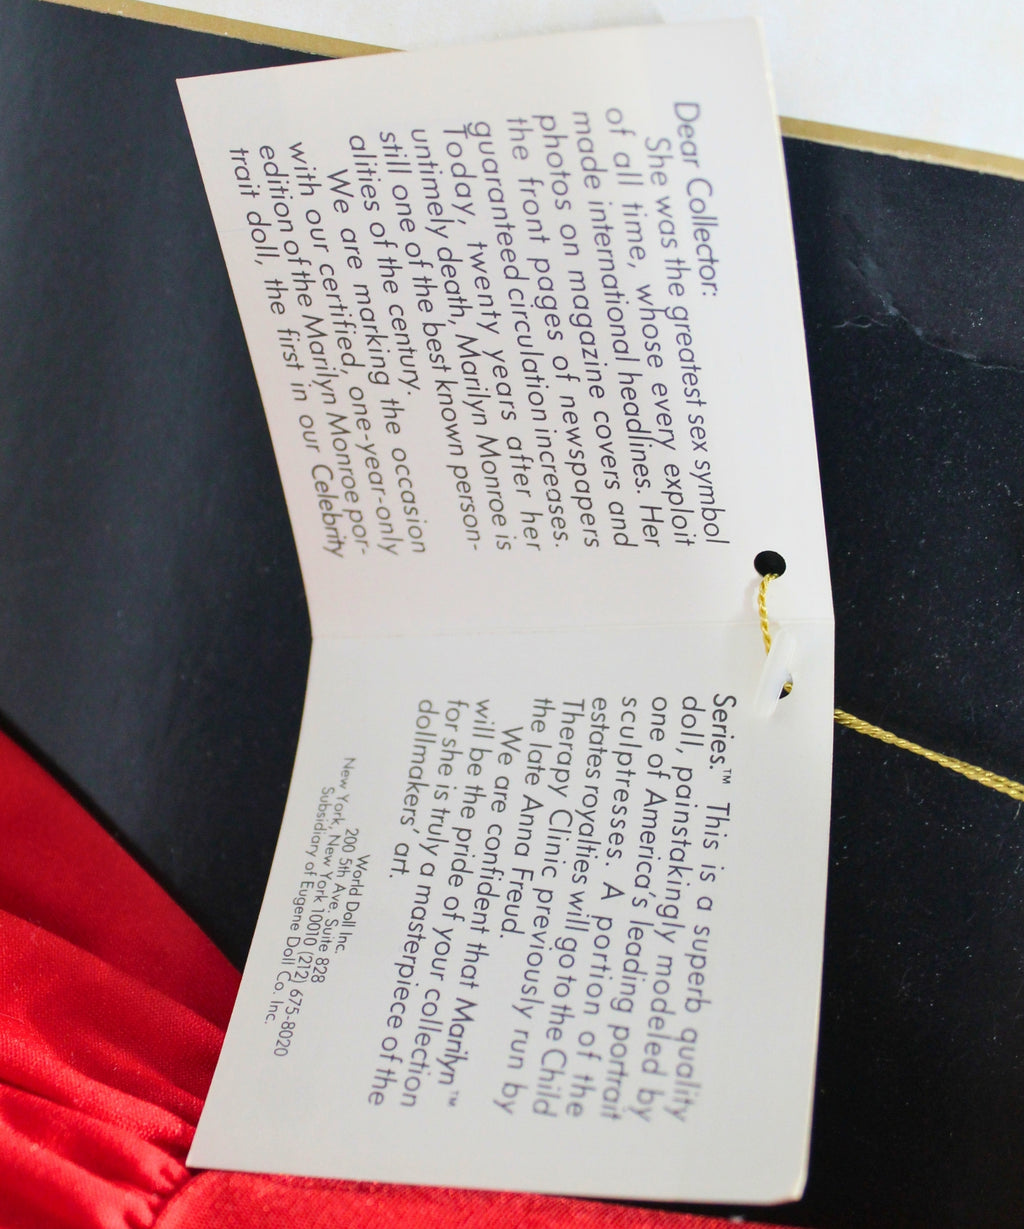 Dear Collector:
She was the greatest sex symbol
of all time, whose every exploit
made international headlines. Her
photos on magazine covers and
the front pages of newspapers
guaranteed circulation increases.
Today, twenty years after her
untimely death, Marilyn Monroe is
still one of the best known person-
alities of the century.
We are marking the occasion
with our certified, one-year-only
edition of the Marilyn Monroe por-
trait doll, the first in our Celebrity
Series.™ This is a superb quality
doll, painstakingly modeled by
one of America's leading portrait
sculptresses. A portion of the
estates royalties will go to the Child
Therapy Clinic previously run by
the late Anna Freud.
We are confident that Marilyn™
will be the pride of your collection
for she is truly a masterpiece of the
dollmakers' art.
World Doll Inc.
200 5th Ave. Suite 828
New York, New York 10010 (212) 675-8020
Subsidiary of Eugene Doll Co. Inc.